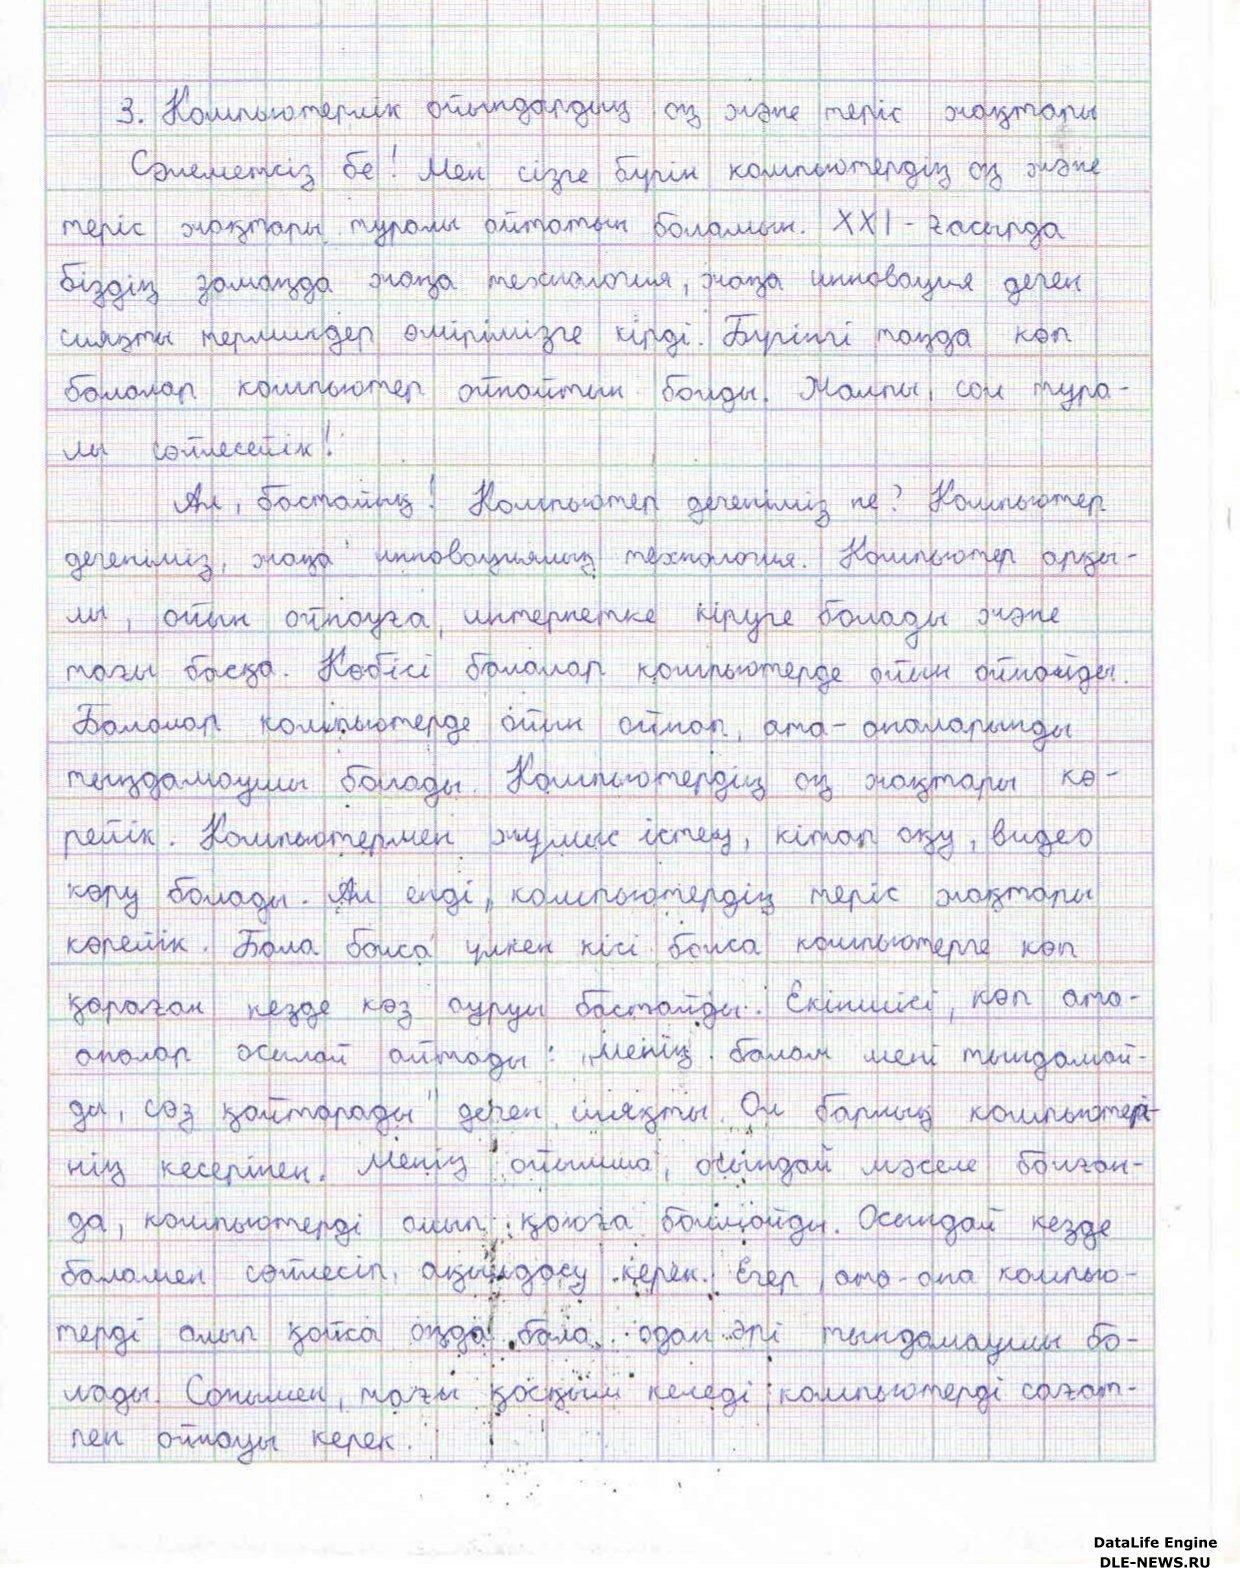 3. Компьютерлік ойындардың оң және теріс жақтары
Сәлеметсіз бе! Мен сізге бүгін компьютердің оң және
теріс жақтары туралы айтатын боламын. XXI - ғасырда
біздің заманда жаңа технология, жаңа инновация деген
сияқты терминдер өмірімізге кірді. Бүгінгі таңда көп
балалар компьютер ойнайтын болды. Жалпы, сол тура-
лы сөйлесейік!
Ал, бастайық! Компьютер дегеніміз не? Компьютер
дегеніміз, жаңа инновациялық технология. Компьютер арқы-
лы, ойын ойнауға, интернетке кіруге болады және
тағы басқа. Көбісі балалар компьютерде ойын ойнайды.
Балалар компьютерде ойын ойнап, ата-аналарынды
тыңдамаушы болады. Компьютердің оң жақтары кө-
рейік. Компьютермен жұмыс істеу, кітап оқу, видео
көру болады. Ал енді, компьютердің теріс жақтары
көрейік. Бала болса үлкен кісі болса компьютерге көп
қараған кезде көз ауруы бастайды. Екіншісі, көп ата-
аналар осылай айтады: „Менің балам мені тындамай-
ды, сөз қайтарады" деген сияқты. Ол барлық компьютері-
нің кесерінен. Менің ойымша, осындай мәселе болған-
да, компьютерді алып қоюға болмайды. Осындай кезде
баламен сөйлесіп, ақылдасу керек. Егер, ата-ана компью-
терді алып қойса онда бала одан әрі тындамаушы бо-
лады. Сонымен, тағы қосқым келеді компьютерді сағат-
пен ойнауы керек.
DataLife Engine
DLE-NEWS.RU